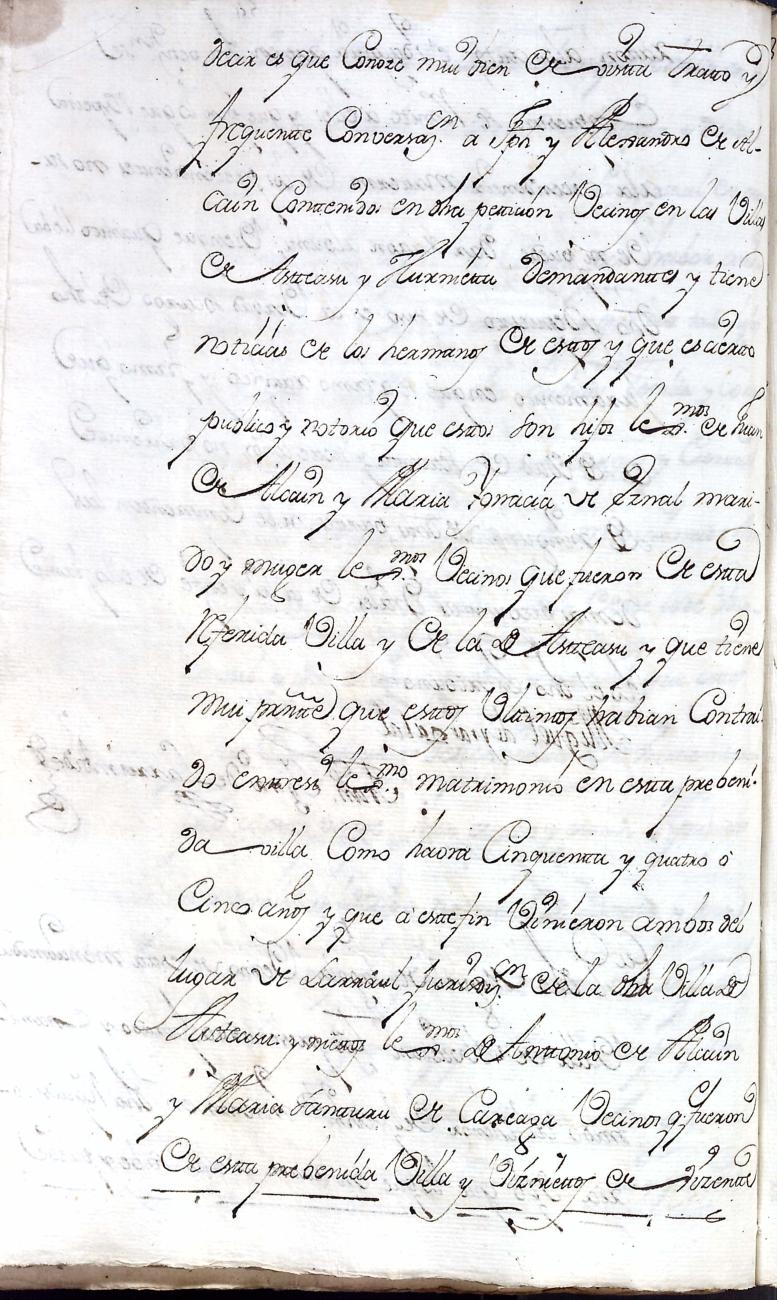 decir es que Conoze mui bien de vista trato y
frequente Conversaz.on a y Alessandro de Al-
cain Contenidos en dha peticion Vecinos en las Villas
de Asteasu y Hurnieta demandantes y tiene
noticias de los hermanos de estos y que es cierto
publico y notorio que estos son hijos lex.mos de Juan
de Alcain y Maria Ygnacia de Eznal mari-
do y muger lex.mos Vecinos que fueron de esta
referida Villa y de la de Asteasu y que tiene
mui pres.te que estos Ultimos habian Contrai-
do entresi lex.mo matrimonio en esta prebeni-
da villa Como haora Cinquenta y quatro o
Cinco años y que a este fin Vinieron ambos del
lugar de Larraul jurisdiz.on de la dha Villa de
Asteasu y nietos lex.mos de Antonio de Alcain
y Maria Santuru de Careaga Vecinos q fueron
de esta prebenida Villa y Viznietos de Vizente